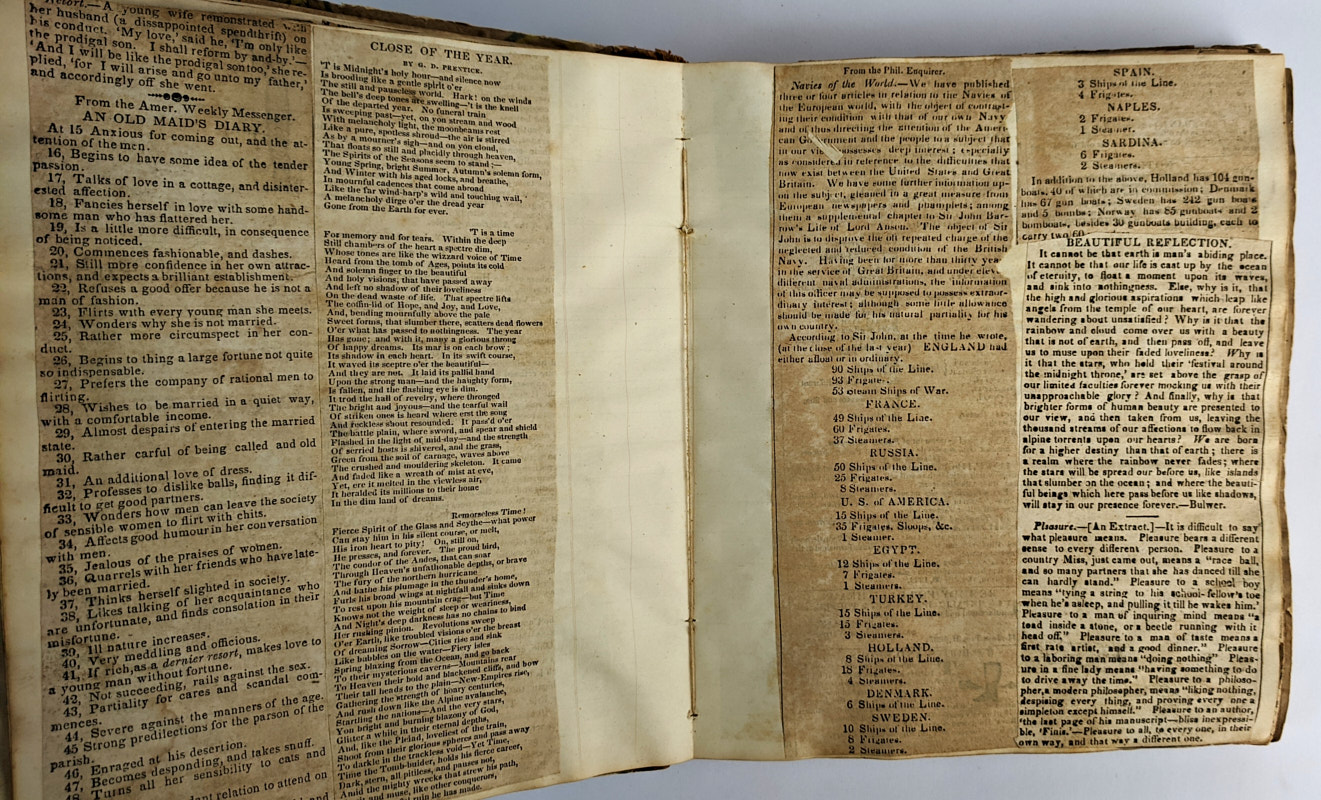 Resort.—A young wife remonstrated with
her husband (a disappointed spendthrift) on
his conduct. 'My love,' said he, 'I'm only like
the prodigal son. I shall reform by and-by.'—
'And I will be like the prodigal son too,' she re-
plied, 'for I will arise and go unto my father,'
and accordingly off she went.
From the Amer. Weekly Messenger.
AN OLD MAID'S DIARY.
At 15 Anxious for coming out, and the at-
tention of the men.
16, Begins to have some idea of the tender
passion.
17, Talks of love in a cottage, and disinter-
ested affection.
18, Fancies herself in love with some hand-
some man who has flattered her.
19, Is a little more difficult, in consequence
of being noticed.
20, Commences fashionable, and dashes.
21, Still more confidence in her own attrac-
tions, and expects a brilliant establishment.
22, Refuses a good offer because he is not a
man of fashion.
23, Flirts with every young man she meets.
24, Wonders why she is not married.
25, Rather more circumspect in her con-
duct.
26, Begins to thing a large fortune not quite
so indispensable.
27, Prefers the company of rational men to
flirting.
28, Wishes to be married in a quiet way,
with a comfortable income.
29, Almost despairs of entering the married
state.
30, Rather carful of being called and old
maid.
31, An additional love of dress.
32, Professes to dislike balls, finding it dif-
ficult to get good partners.
33, Wonders how men can leave the society
of sensible women to flirt with chits.
34, Affects good humour in her conversation
with men.
35, Jealous of the praises of women.
36, Quarrels with her friends who have late-
ly been married.
37, Thinks herself slighted in society.
38, Likes talking of her acquaintance who
are unfortunate, and finds consolation in their
misfortune.
39, Ill nature increases.
40, Very meddling and officious.
41, If rich, as a dernier resort, makes love to
a young man without fortune.
42, Not succeeding, rails against the sex.
43, Partiality for cares and scandal com-
mences.
44, Severe against the manners of the age.
45 Strong predilections for the parson of the
parish.
46, Enraged at his desertion.
47, Becomes desponding, and takes snuff.
48, Turns all her sensibility to cats and
relation to attend on
CLOSE OF THE YEAR.
BY G. D. PRENTICE.
'T is Midnight's holy hour—and silence now
Is brooding like a gentle spirit o'er
The still and pauseless world. Hark! on the winds
The bell's deep tones are swelling—'t is the knell
Of the departed year. No funeral train
Is sweeping past—yet, on you stream and wood
With melancholy light, the moonbeams rest
Like a pure, spotless shroud—the air is stirred
As by a mourner's sigh—and on yon cloud,
That floats so still and placidly through heaven,
The Spirits of the Seasons seem to stand;—
Young Spring, bright Summer, Autumn's solemn form,
And Winter with his aged locks, and breathe,
In mournful cadences that come abroad
Like the far wind-harp's wild and touching wail,
A melancholy dirge o'er the dread year
Gone from the Earth for ever.
'T is a time
For memory and for tears. Within the deep
Still chambers of the heart a spectre dim,
Whose tones are like the wizzard voice of Time
Heard from the tomb of Ages, points its cold
And solemn finger to the beautiful
And holy visions, that have passed away
And left no shadow of their loveliness
On the dead waste of life. That spectre lifts
The coffin-lid of Hope, and Joy, and Love,
And, bending mournfully above the pale
Sweet forms, that slumber there, scatters dead flowers
O'er what has passed to nothingness. The year
Has gone; and with it, many a glorious throng
Of happy dreams. Its mar is on each brow;
Its shadow in each heart. In its swift course,
It waved its sceptre o'er the beautiful—
And they are not. It laid its pallid hand
Upon the strong man—and the haughty form,
Is fallen, and the flashing eye is dim.
It trod the hall of revelry, where thronged
The bright and joyous—and the tearful wail
Of striken ones is heard where erst the song
And reckless shout resounded. It pass'd o'er
The battle plain, where sword, and spear and shield
Flashed in the light of mid-day—and the strength
Of serried hosts is shivered, and the grass,
Green from the soil of carnage, waves above
The crushed and mouldering skeleton. It came
And faded like a wreath of mist at eve,
Yet, ere it melted in the viewless air,
It heralded its millions to their home
In the dim land of dreams.
Remorseless Time!
Fierce Spirit of the Glass and Scythe—what power
Can stay him in his silent course, or melt,
His iron heart to pity! On, still on,
He presses, and forever. The proud bird,
The condor of the Andes, that can soar
Through Heaven's unfathomable depths, or brave
The fury of the northern hurricane
And bathe his plumage in the thunder's home,
Furls his broad wings at nightfall and sinks down
To rest upon his mountain crag—but Time
Knows not the weight of sleep or weariness,
And Night's deep darkness has no chains to bind
Her rushing pinion. Revolutions sweep
O'er Earth, like troubled visions o'er the breast
Of dreaming Sorrow—Cities rise and sink
Like bubbles on the water—Fiery isles
Spring blazing from the Ocean, and go back
To their mysterious caverns—Mountains rear
To Heaven their bold and blackened cliffs, and bow
Their tall heads to the plain—New-Empires rise,
Gathering the strength of hoary centuries,
And rush down like the Alpine avalanche,
Startling the nations—And the very stars,
You bright and burning blazony of God,
Glitter a while in their eternal depths,
And, like the Pleiad, loveliest of the train,
Shoot from their glorious spheres and pass away
To darkle in the trackless void—Yet Time,
Time the Tomb-builder, holds his fierce career,
Dark, stern, all pitiless, and pauses not,
Amid the mighty wrecks that strew his path,
and muse, like other conquerors,
ruin he has made.
From the Phil. Enquirer.
Navies of the World.—We have published
three or four articles in relation to the Navies of
the European world, with the object of contrast-
ing their condition with that of our own Navy
and of thus directing the attention of the Ameri-
can Government and the people to a subject that
in our vie possesses deep interest; especially
as considered in reference to the difficulties that
now exist between the United States and Great
Britain. We have some further information up-
on the subject, gleaned in a great measure from
European newspapers and phamplets; among
them a supplemental chapter to Sir John Bar-
row's Life of Lord Anson. The object of Sir
John is to disprove the oft repeated charge of the
neglected and reduced condition of the British
Navy. Having been for more than thirty year
in the service of Great Britain, and under eleve
different naval administrations, the information
of this officer may be supposed to possess extraor-
dinary interest; although some little allowance
should be made for his natural partiality for his
own country.
According to Sir John, at the time he wrote,
(at the close of the last year) ENGLAND had
either afloat or in ordinary.
90 Ships of the Line.
93 Frigates.
53 Steam Ships of War.
FRANCE.
49 Ships of the Line.
60 Frigates.
37 Steamers.
RUSSIA.
50 Ships of the Line.
25 Frigates.
8 Steamers.
U. S. of AMERICA.
15 Ships of the Line.
35 Frigates, Sloops, &c.
1 Steamer.
EGYPT.
12 Ships of the Line.
7 Frigates.
1 Steamers.
TURKEY.
15 Ships of the Line.
15 Frigates.
3 Steamers.
HOLLAND.
8 Ships of the Line.
18 Frigates.
4 Steamers.
DENMARK.
6 Ships of the Line.
SWEDEN.
10 Ships of the Line.
8 Frigates.
2 Steamers.
SPAIN.
3 Ships of the Line.
4 Frigates.
NAPLES.
2 Frigates.
1 Steamer.
SARDINA.
6 Frigates.
2 Steamers.
In addition to the above, Holland has 104 gun-
boats, 40 of which are in commission; Denmark
has 67 gun boats; Sweden has 242 gun boats
and 5 bombs; Norway has 85 gunboats and 2
bomboats, besides 30 gunboats building, each to
carry two 60
BEAUTIFUL REFLECTION.
It cannot be that earth is man's abiding place.
It cannot be that our life is cast up by the ocean
of eternity, to float a moment upon its waves,
and sink into nothingness. Else, why is it, that
the high and glorious aspirations which leap like
angels from the temple of our heart, are forever
wandering about unsatisfied? Why is it that the
rainbow and cloud come over us with a beauty
that is not of earth, and then pass off, and leave
us to muse upon their faded loveliness? Why is
it that the stars, who hold their 'festival around
the midnight throne,' are set above the grasp of
our limited faculties forever mocking us with their
unapproachable glory? And finally, why is that
brighter forms of human beauty are presented to
our view, and then taken from us, leaving the
thousand streams of our affections to flow back in
alpine torrents upon our hearts? We are born
for a higher destiny than that of earth; there is
a realm where the rainbow never fades; where
the stars will be spread our before us, like islands
that slumber on the ocean; and where the beauti-
ful beings which here pass before us like shadows,
will stay in our presence forever.—Bulwer.
Pleasure.—[An Extract.]—It is difficult to say
what pleasure means. Pleasure bears a different
sense to every different person. Pleasure to a
country Miss, just came out, means a "race ball,
and so many partners that she has danced till she
can hardly stand." Pleasure to a school boy
means "tying a string to his school-fellow's toe
when he's asleep, and pulling it till he wakes him.'
Pleasure to a man of inquiring mind means "a
toad inside a stone, or a beetle running with it
head off." Pleasure to a man of taste means a
first rate artist, and a good dinner." Pleasure
to a laboring man means "doing nothing" Pleas-
ure in a fine lady means "having something to do
to drive away the time." Pleasure to a philoso-
pher, a modern philosopher, means "liking nothing,
despising every thing, and proving every one a
simpleton except himself." Pleasure to an author,
'the last page of his manuscript—bliss inexpressi-
ble, 'Finis.'—Pleasure to all, to every one, in their
own way, and that way a different one.